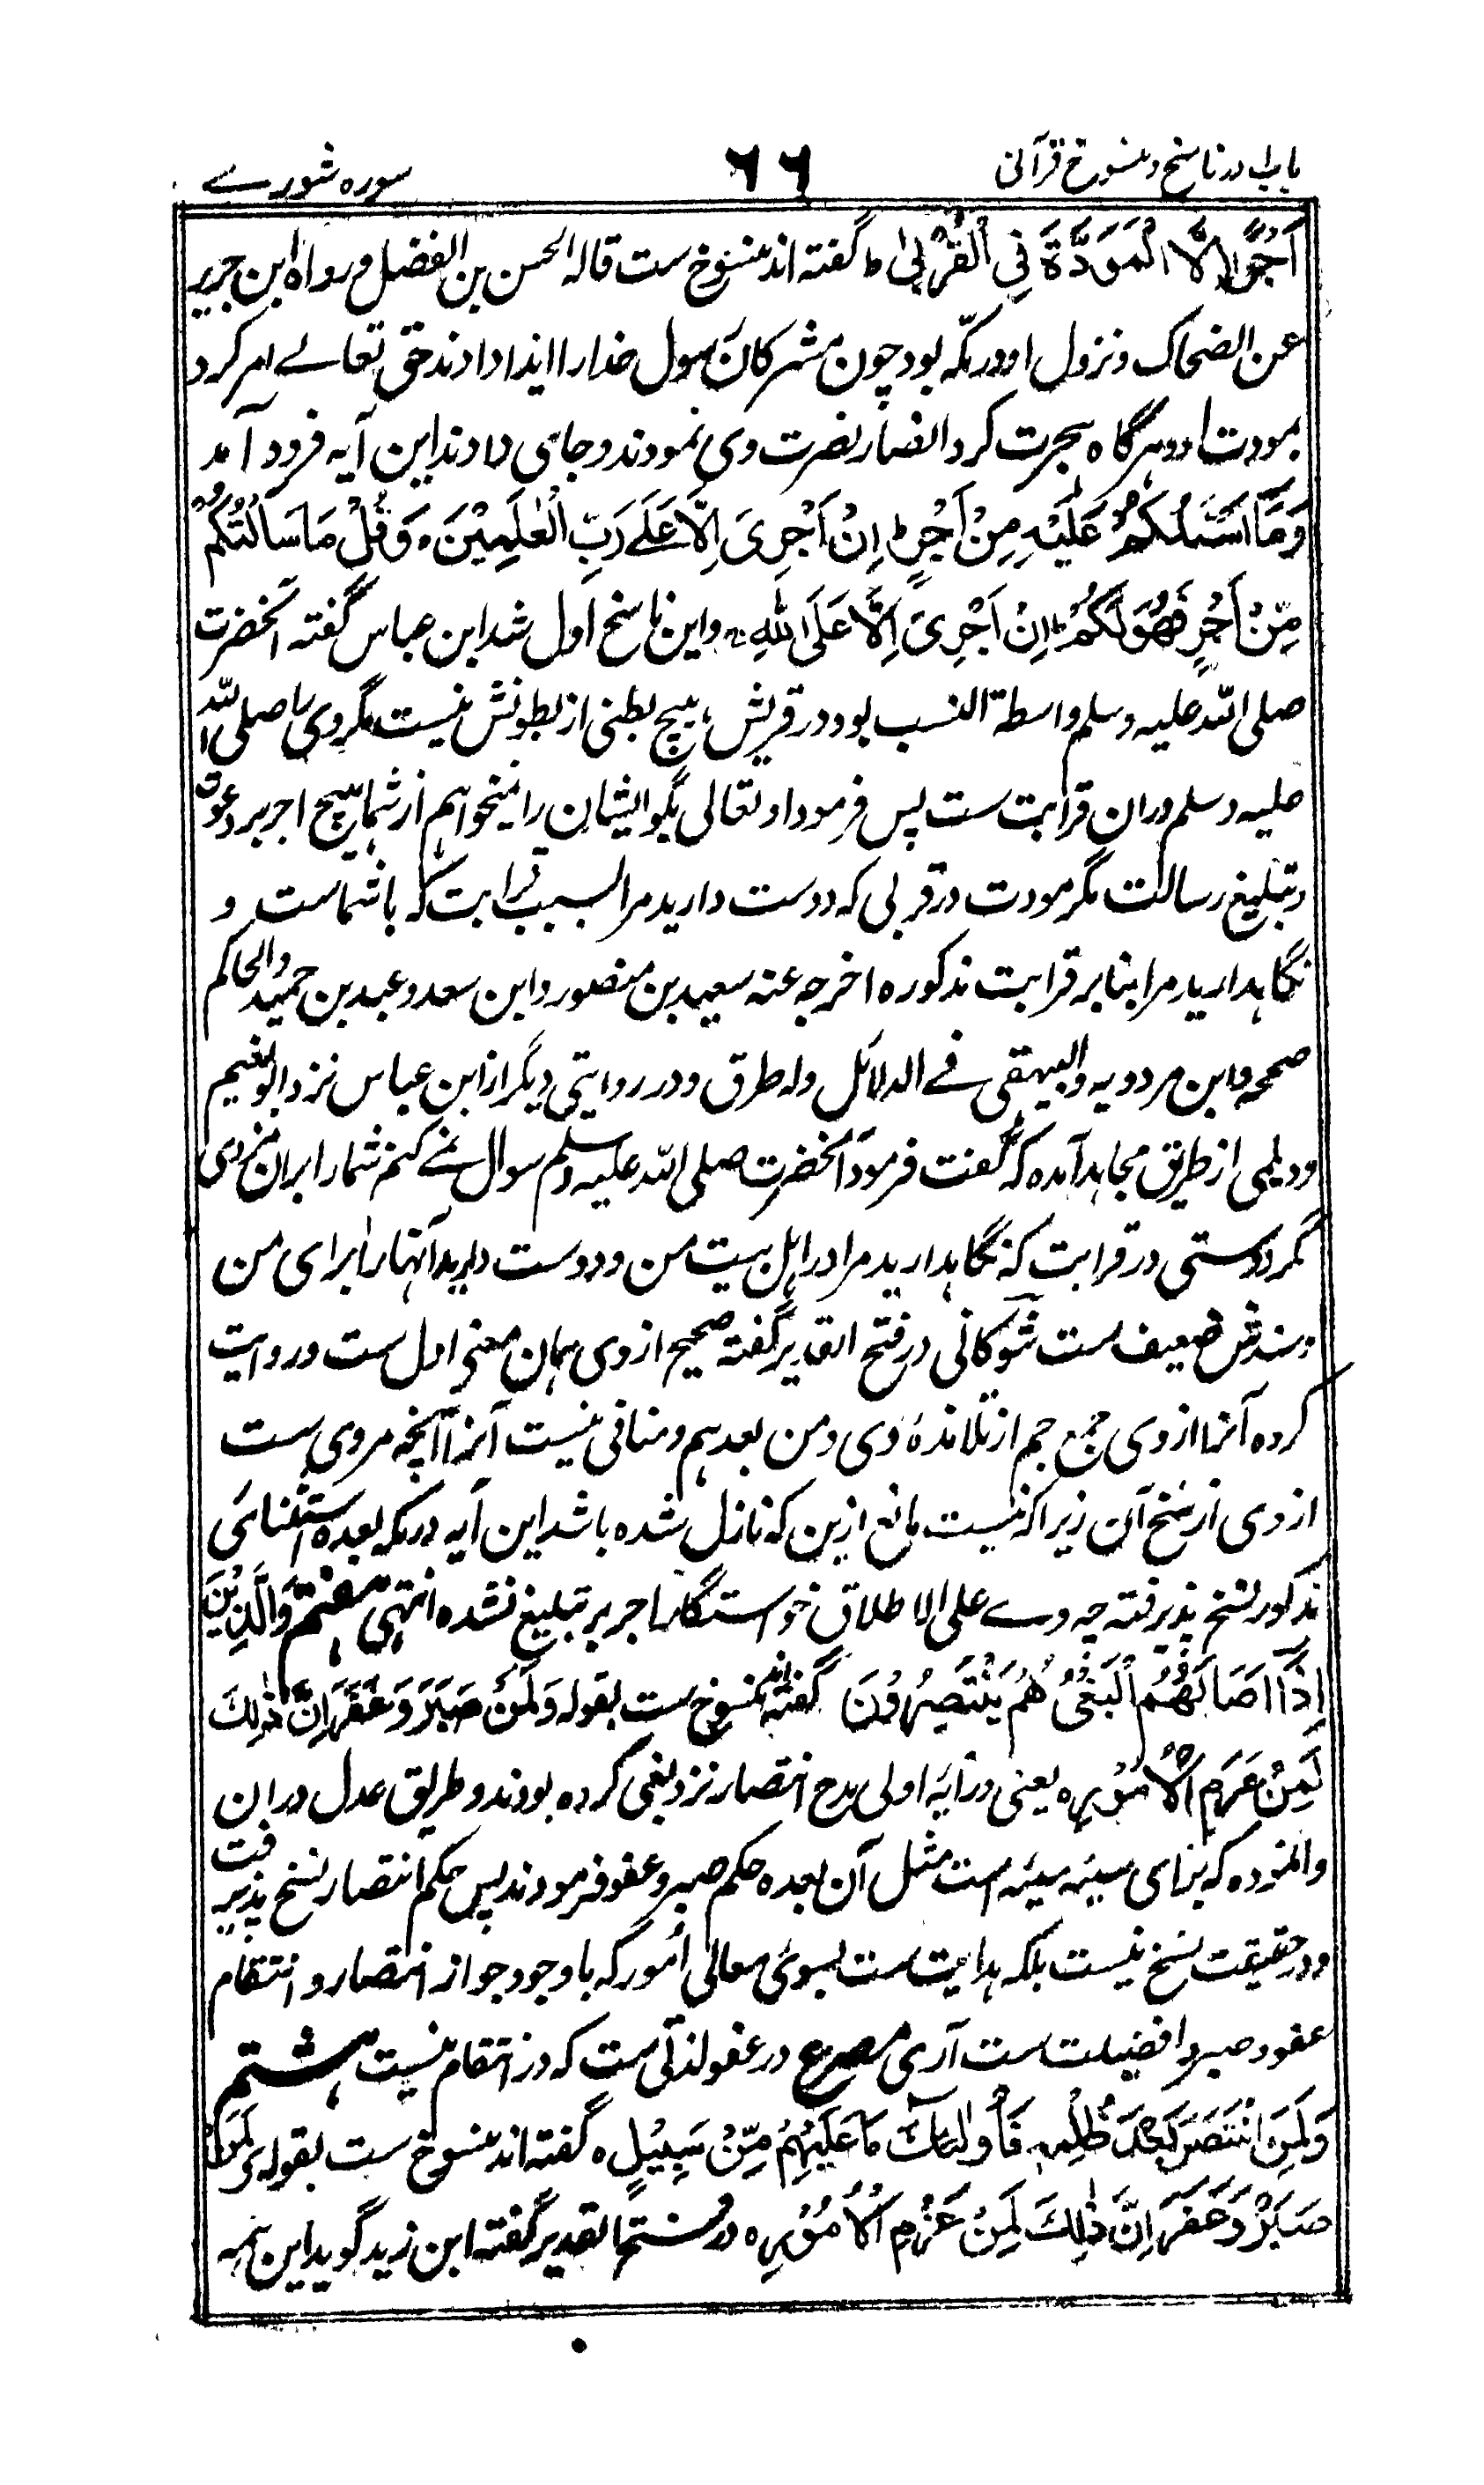 باب در ناسخ و منسوخ قرآنی
۶۶
سوره شورے
أَجْرًا إِلَّا الْمَوَدَّةَ فِي الْقُرْبٰىٰ ط گفته اند منسوخ ست قاله الحسن بن الفضل و رواه ابن جریر
عن الضحاک و نزول او در مکّه بود چون مشرکان رسول خدا را ایذا دادند حق تعالے امر کرد
بمودت او و هرگاه هجرت کرد انصار نصرت وی نمودند و جای دادند این آیه فرود آمد
وَمَا أَسْئَلُكُمْ عَلَيْهِ مِنْ أَجْرٍ إِنْ أَجْرِىَ إِلَّا عَلَے رَبِّ الْعٰلَمِيْنَ ه وَقُلْ مَا سَاَلْتُكُمْ
مِّنْ أَجْرٍ فَهُوَ لَكُمْ إِنْ أَجْرِىَ إِلَّا عَلَى اللهِ و این ناسخ اول شد ابن عباس گفته آنحضرت
صلی اللّه علیه و سلم واسطة النسب بود در قریش هیچ بطنی از بطونش نیست مگر وی را صلی اللّه
علیه و سلم در ان قرابت ست پس فرمود او تعالی بگو ایشان را نمیخواهم از شما هیچ اجر بر دعوت
و تبلیغ رسالت مگر مودت در قربی که دوست دارید مرا بسبب قرابت که با شماست و
نگاهدارید مرا بنا بر قرابت مذکوره اخرجه عنه سعید بن منصور و ابن سعد و عبد بن حمید و الحاکم
صححه و ابن مردویه و البیهقی فے الدلائل و له طرق و در روایتی دیگر از ابن عباس نزد ابو نعیم
و دیلمی از طریق مجاهد آمده که گفت فرمود آنحضرت صلی اللّه علیه وسلم سوال نمے کنم شما را بران مزدی
مگر دوستی در قرابت که نگاهدارید مرا در اهل بیت من و دوست دارید آنها را برای من
و سندش ضعیف ست شوکانی در فتح القدیر گفته صحیح از وی همان معنی اول ست و روایت
کرده آنرا از وی جمع جم از تلامذهٔ وی و من بعدهم و منافی نیست آنرا آنچه مروی ست
از وی از نسخ آن زیرا که نیست مانع ازین که نازل شده باشد این آیه در مکه بعده استثنائی
مذکور نسخ پذیرفته چه وے علی الاطلاق خواستگار اجر بر تبلیغ نشده انتهی هفتم وَالَّذِيْنَ
إِذَا أَصَابَهُمُ الْبَغْىُ هُمْ يَنْتَصِرُوْنَ گفته اند منسوخ ست بقوله وَلَمَنْ صَبَرَ وَغَفَرَ إِنَّ ذٰلِكَ
لَمِنْ عَزْمِ الْأُمُوْرِ ه یعنی در آیهٔ اولی مدح انتصار نزد بغی کرده بودند و طریق عدل در ان
وانموده که جزای سیئه سیئه است مثل آن بعده حکم صبر و عفو فرمودند پس حکم انتصار نسخ پذیرفت
و در حقیقت نسخ نیست بلکه هدایت ست بسوی معالی امور که با وجود جواز انتصار و انتقام
عفو و صبر را فضیلت ست آری مصرع در عفو لذتی ست که در انتقام نیست هشتم
وَلَمَنِ انْتَصَرَ بَعْدَ ظُلْمِهٖ فَأُولٰئِكَ مَا عَلَيْهِمْ مِّنْ سَبِيْلٍ ه گفته اند منسوخ ست بقوله وَلَمَنْ
صَبَرَ وَغَفَرَ إِنَّ ذٰلِكَ لَمِنْ عَزْمِ الْأُمُوْرِ ه در فتح القدیر گفته ابن زید گوید این همه